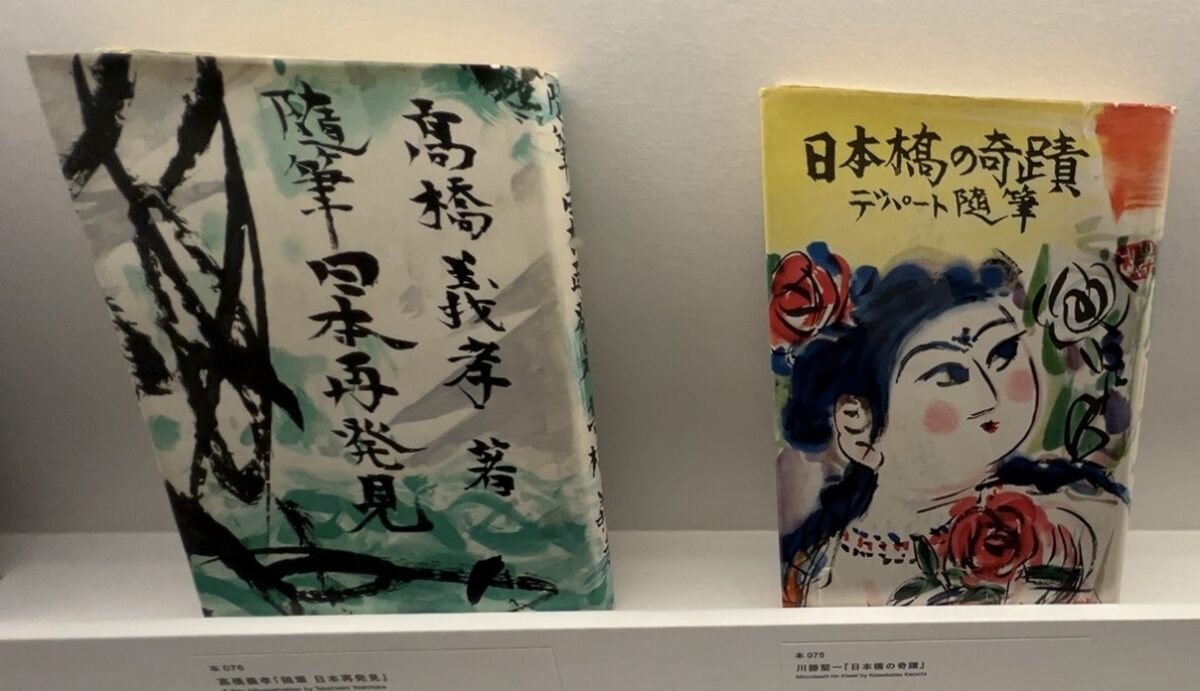 高橋義孝 著
随筆 日本再発見
日本橋の奇蹟
デパート随筆
本 076
高橋義孝『随筆 日本再発見』
本 075
川勝堅一『日本橋の奇蹟』
Nihonbashi No Kiseki by Kawakatsu Kenichi